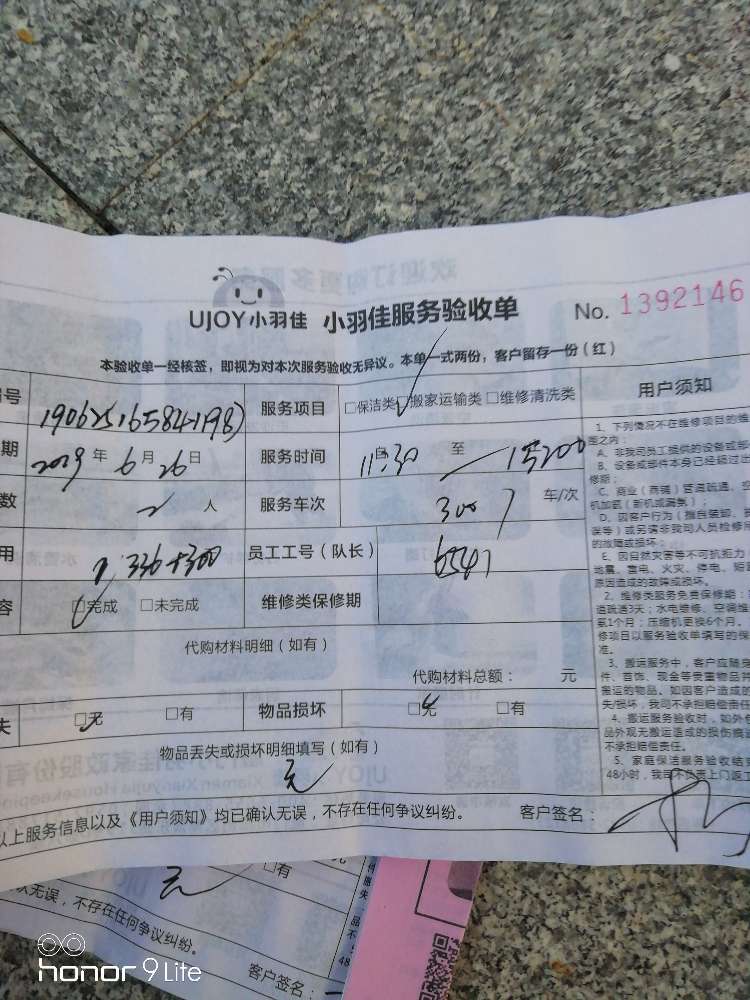 UJOY小羽佳 小羽佳服务验收单 No. 1392146
本验收单一经核签，即视为对本次服务验收无异议。本单一式两份，客户留存一份（红）
号 服务项目 □保洁类 □搬家运输类 □维修清洗类 用户须知
期 2019 年 6 月 26 日 服务时间 11:30 至
数 2 人 服务车次 车/次
用 336+300 员工工号（队长）
容 □完成 □未完成 维修类保修期
代购材料明细（如有）
代购材料总额： 元
失 □无 □有 物品损坏 □无 □有
物品丢失或损坏明细填写（如有）
无
以上服务信息以及《用户须知》均已确认无误，不存在任何争议纠纷。 客户签名：
1、下列情况不在维修项目的维
围之内：
A、非我司员工提供的设备或部
B、设备或部件本身已经超过出
修期；
C、商业（商铺）管道疏通、空
机加氨（新机或漏氨）；
D、因客户行为（擅自装卸、
误等）或另请非我司人员检修
的故障或损坏；
E、因自然灾害等不可抗拒力
地震、雷电、火灾、停电、短
原因造成的故障或损坏。
2、维修类服务免费保修期：
道疏通3天；水电维修、空调维
氨1个月；压缩机更换6个月。
修项目以服务验收单填写的保
准。
3、搬运服务中，客户应随身
件、首饰、现金等贵重物品
搬运的物品。如因客户造成
失/损坏，我司不承担赔偿责任
4、搬运服务验收时，如外
品外观无搬运造成的损伤痕
不承担赔偿责任。
5、家庭保洁服务验收结
48小时，我司不负责上门返工
□有
认无误，不存在任何争议纠纷。
客户签名：
honor 9 Lite